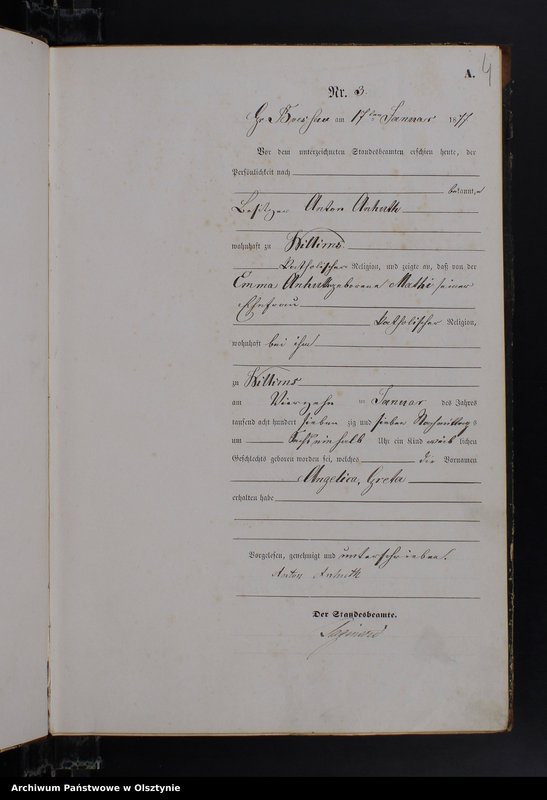 A.
4
Nr. 3.
am 17ten Januar 1877
Vor dem unterzeichneten Standesbeamten erschien heute, der
Persönlichkeit nach
bekannte
Besitzer Anton Anhuth
wohnhaft zu
katholischer Religion, und zeigte an, daß von der
Emma Anhuth geborene seiner
Ehefrau
katholischer Religion,
wohnhaft bei ihm
zu
am Vierzehn im Januar des Jahres
tausend acht hundert sieben zig und sieben Nachmittags
um Uhr ein Kind weib lichen
Geschlechts geboren worden sei, welches die Vornamen
Angelica, Greta
erhalten habe
Vorgelesen, genehmigt und unterschrieben.
Anton Anhuth
Der Standesbeamte.
Archiwum Państwowe w Olsztynie